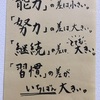 「能力」の差は小さい。
「努力」の差は大きい。
「継続」の差はとても大きい。
「習慣」の差が
いちばん大きい。